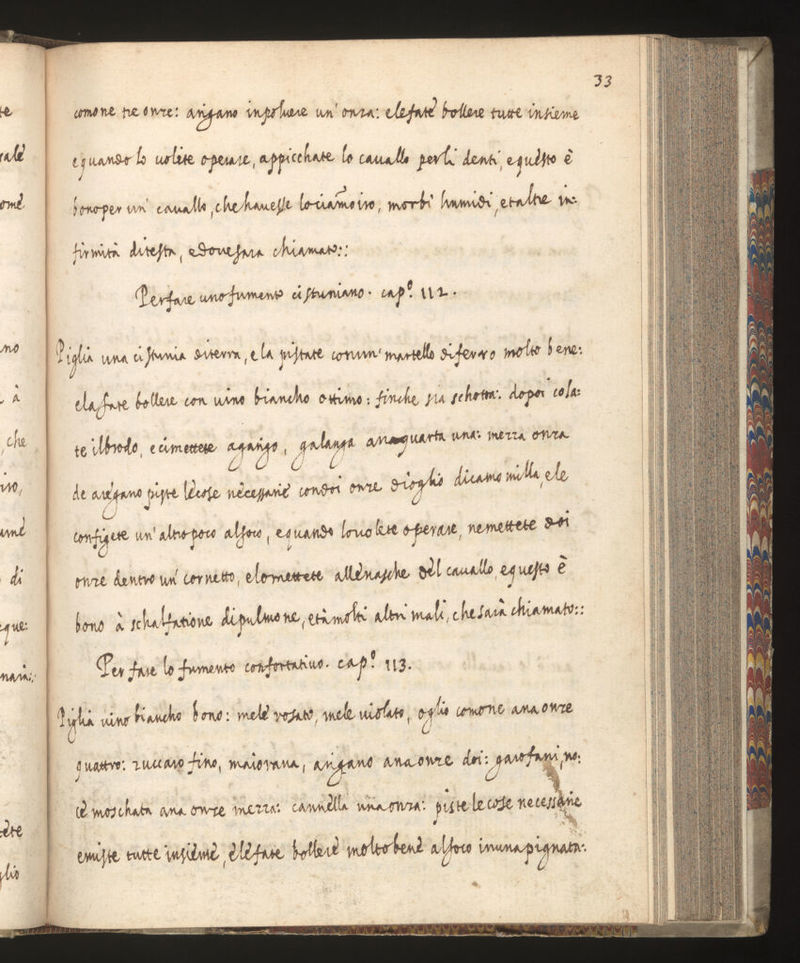 33
comone tre onze: arigano inpoluere un' onza: elefate bollere tutte insieme
equando lo uolete operare, appicchate lo cauallo perli denti, equesto è
bonoper un' cauallo, chehauesse lociamoiro, morbi humidi, etaltre in:
firmità ditesta, edouesara chiamato::
Perfare unofumento cistuniano. cap.º 112.
Piglia una cistunia diterra, ela pistate conun' martello diferro molto bene:
elafate bollere con uino biancho ottimo: finche sia schotta: dopoi cola:
te ilbrodo, ecimettete agarigo, galanga ana quarta una: mezza onza
de arigano piste lecose necessarie condoi onze dioglio dicamomilla, ele
configete un' altropoco alfoco, equando louolete operare, nemettete doi
onze dentro un' cornetto, elomettete allenasche del cauallo, equesto è
bono à schalfatione dipulmone, etàmolti altri mali, chesarà chiamato::
Per fare lo fumento confortatiuo. cap.º 113.
Piglia uino biancho bono: mele rosato, mele uiolato, oglio comone ana onze
quattro: zuccaro fino, maiorana, arigano ana onze doi: garofani, no:
ce moschata ana onze mezza: cannella una onza: piste le cose necessarie
emiste tutte insieme, elefate bollere moltobene alfoco inunapignata: